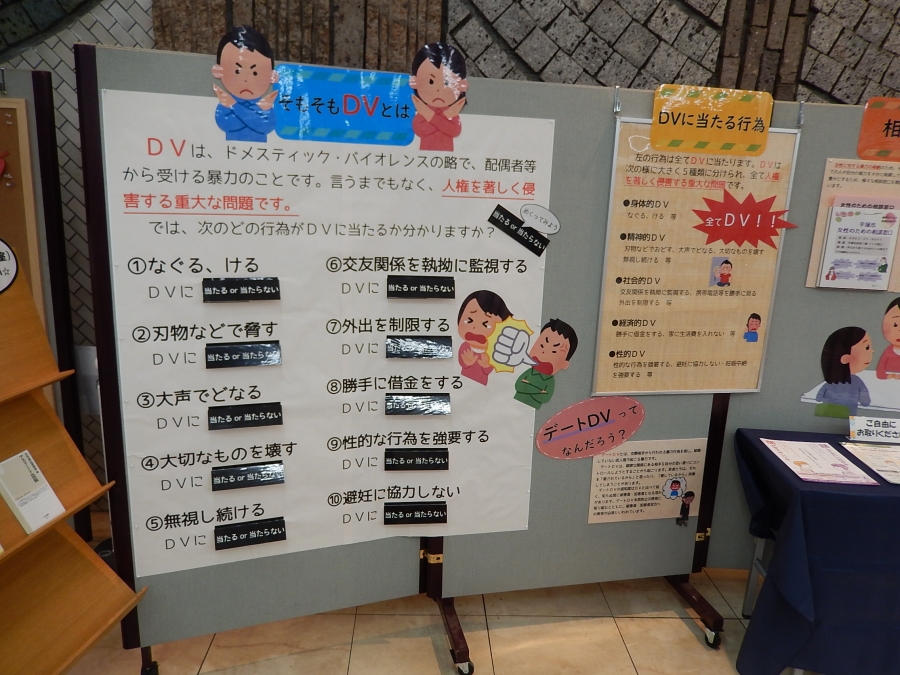 そもそもDVとは
DVは、ドメスティック・バイオレンスの略で、配偶者等
から受ける暴力のことです。言うまでもなく、人権を著しく侵
害する重大な問題です。
では、次のどの行為がDVに当たるか分かりますか？
めくってみよう
当たるor当たらない
①なぐる、ける
DVに 当たる or 当たらない
②刃物などで脅す
DVに 当たる or 当たらない
③大声でどなる
DVに 当たる or 当たらない
④大切なものを壊す
DVに 当たる or 当たらない
⑤無視し続ける
DVに 当たる or 当たらない
⑥交友関係を執拗に監視する
DVに 当たる or 当たらない
⑦外出を制限する
DVに 当たる or 当たらない
⑧勝手に借金をする
DVに 当たる or 当たらない
⑨性的な行為を強要する
DVに 当たる or 当たらない
⑩避妊に協力しない
DVに 当たる or 当たらない
DVに当たる行為
左の行為は全てDVに当たります。DVは
次の様に大きく５種類に分けられ、全て人権
を著しく侵害する重大な問題です。
全てDV！！
●身体的DV
なぐる、ける 等
●精神的DV
刃物などでおどす、大声でどなる、大切なものを壊す
無視し続ける 等
●社会的DV
交友関係を執拗に監視する、携帯電話等を勝手に見る
外出を制限する 等
●経済的DV
勝手に借金をする、家に生活費を入れない 等
●性的DV
性的な行為を強要する、避妊に協力しない・妊娠中絶
を強要する 等
デートDVって
なんだろう？
相
女性のための相談窓口
平塚市
女性のための相談窓口
ご自由に
お取りくださ